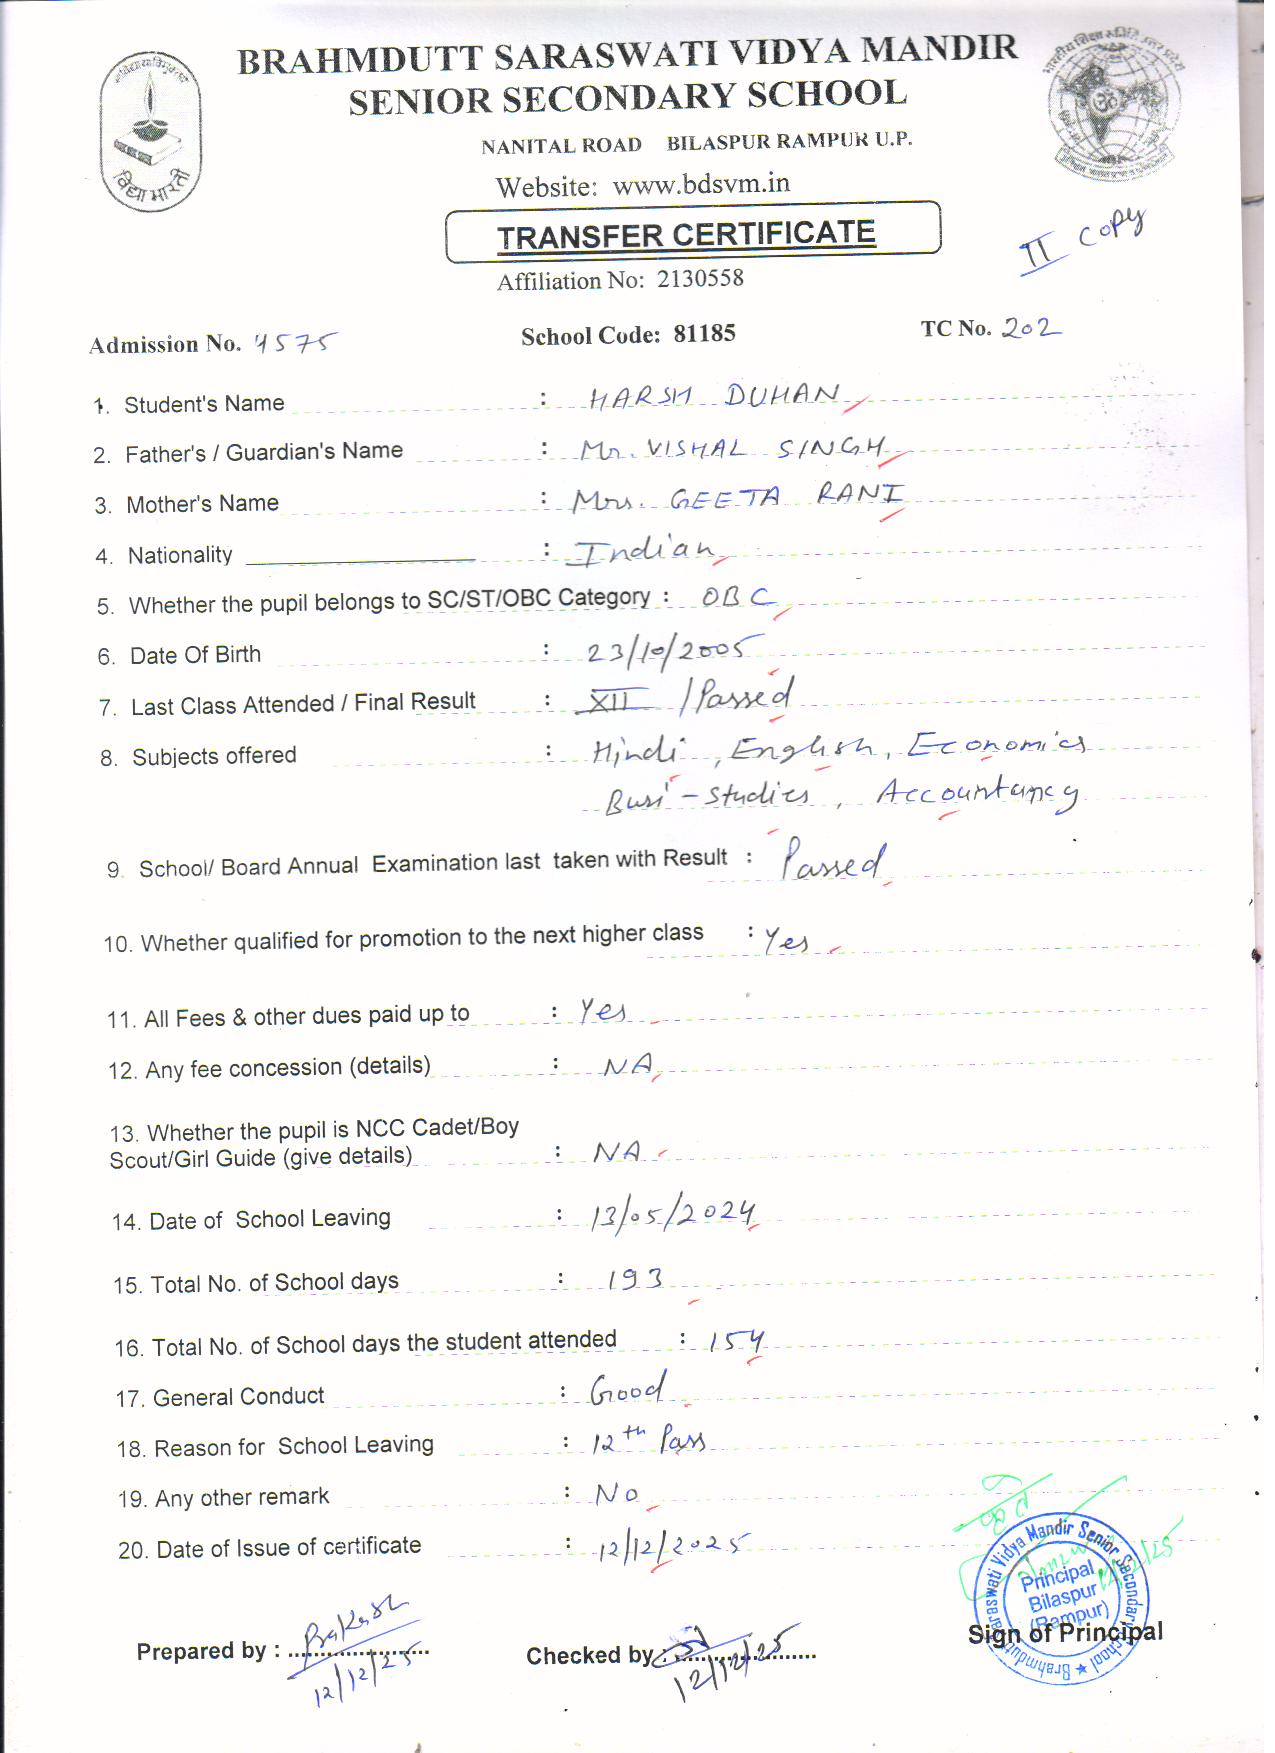 BRAHMDUTT SARASWATI VIDYA MANDIR
SENIOR SECONDARY SCHOOL
NANITAL ROAD BILASPUR RAMPUR U.P.
Website: www.bdsvm.in
विद्या भारती
TRANSFER CERTIFICATE
II copy
Affiliation No: 2130558
Admission No. 4575 School Code: 81185 TC No. 202
1. Student's Name : HARSH DUHAN
2. Father's / Guardian's Name : Mr. VISHAL SINGH
3. Mother's Name : Mrs. GEETA RANI
4. Nationality : Indian
5. Whether the pupil belongs to SC/ST/OBC Category : OBC
6. Date Of Birth : 23/10/2005
7. Last Class Attended / Final Result : XII / Passed
8. Subjects offered : Hindi, English, Economics
Busi-Studies, Accountancy
9. School/ Board Annual Examination last taken with Result : Passed
10. Whether qualified for promotion to the next higher class : Yes
11. All Fees & other dues paid up to : Yes
12. Any fee concession (details) : NA
13. Whether the pupil is NCC Cadet/Boy
Scout/Girl Guide (give details) : NA
14. Date of School Leaving : 13/05/2024
15. Total No. of School days : 193
16. Total No. of School days the student attended : 154
17. General Conduct : Good
18. Reason for School Leaving : 12th Pass
19. Any other remark : No
20. Date of Issue of certificate : 12/12/2025
Brahmdutt Saraswati Vidya Mandir Senior Secondary School
Principal
Bilaspur
(Rampur)
Prepared by : Prakash Checked by : Sign of Principal
12/12/25 12/12/25